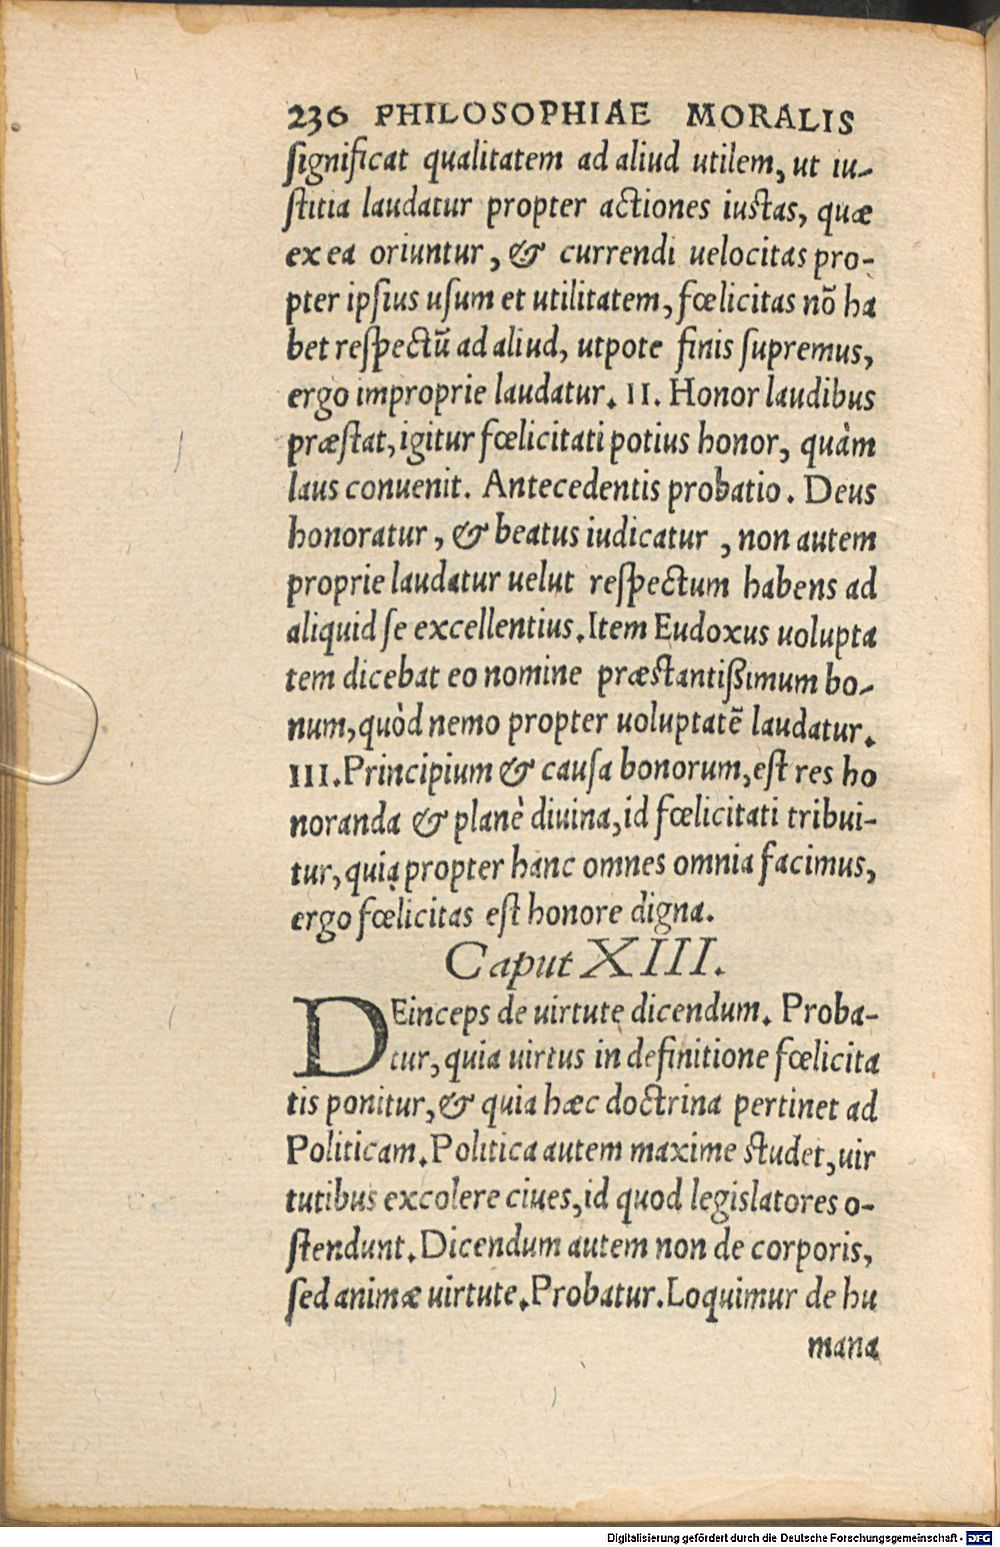 236 PHILOSOPHIAE MORALIS
ſignificat qualitatem ad aliud utilem, ut iu-
ſtitia laudatur propter actiones iuſtas, quæ
ex ea oriuntur, & currendi uelocitas pro-
pter ipſius uſum et utilitatem, fœlicitas nō ha
bet reſpectū ad aliud, utpote finis ſupremus,
ergo improprie laudatur. II. Honor laudibus
præſtat, igitur fœlicitati potius honor, quàm
laus conuenit. Antecedentis probatio. Deus
honoratur, & beatus iudicatur, non autem
proprie laudatur uelut reſpectum habens ad
aliquid ſe excellentius. Item Eudoxus uolupta
tem dicebat eo nomine præſtantißimum bo-
num, quòd nemo propter uoluptatē laudatur.
III. Principium & cauſa bonorum, eſt res ho
noranda & planè diuina, id fœlicitati tribui-
tur, quia propter hanc omnes omnia facimus,
ergo fœlicitas eſt honore digna.
Caput XIII.
DEinceps de uirtute dicendum. Proba-
tur, quia uirtus in definitione fœlicita
tis ponitur, & quia hæc doctrina pertinet ad
Politicam. Politica autem maxime ſtudet, uir
tutibus excolere ciues, id quod legislatores o-
ſtendunt. Dicendum autem non de corporis,
ſed animæ uirtute. Probatur. Loquimur de hu
mana
Digitalisierung gefördert durch die Deutsche Forschungsgemeinschaft - DFG